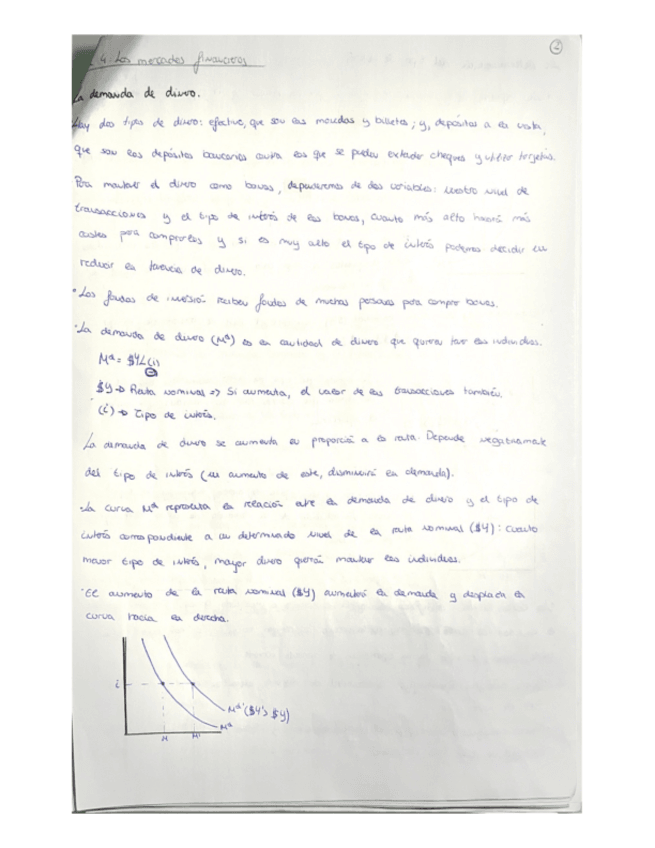 4. Los mercados financieros
②
La demanda de dinero.
Hay dos tipos de dinero: efectivo, que son las monedas y billetes; y, depósitos a la vista,
que son los depósitos bancarios contra los que se pueden extender cheques y utilizar tarjetas.
Para mantener el dinero como bonos, dependeremos de dos variables: nuestro nivel de
transacciones y el tipo de interés de los bonos, cuanto más alto habrá más
costes para comprarlos y si es muy alto el tipo de interés podemos decidir en
reducir la tenencia de dinero.
· Los fondos de inversión reciben fondos de muchas personas para comprar bonos.
· La demanda de dinero (Mᵈ) es la cantidad de dinero que quieren tener los individuos.
Mᵈ = $YL(i)
⊖
$Y → Renta nominal => Si aumenta, el valor de las transacciones también.
(i) → Tipo de interés.
La demanda de dinero se aumenta en proporción a la renta. Depende negativamente
del tipo de interés (un aumento de este, disminuirá la demanda).
· La curva Mᵈ representa la relación entre la demanda de dinero y el tipo de
interés correspondiente a un determinado nivel de la renta nominal ($Y): cuanto
menor tipo de interés, mayor dinero querrán mantener los individuos.
· El aumento de la renta nominal ($Y) aumentará la demanda y desplaza la
curva hacia la derecha.
i
Mᵈ' ($Y'> $Y)
Mᵈ
M M'